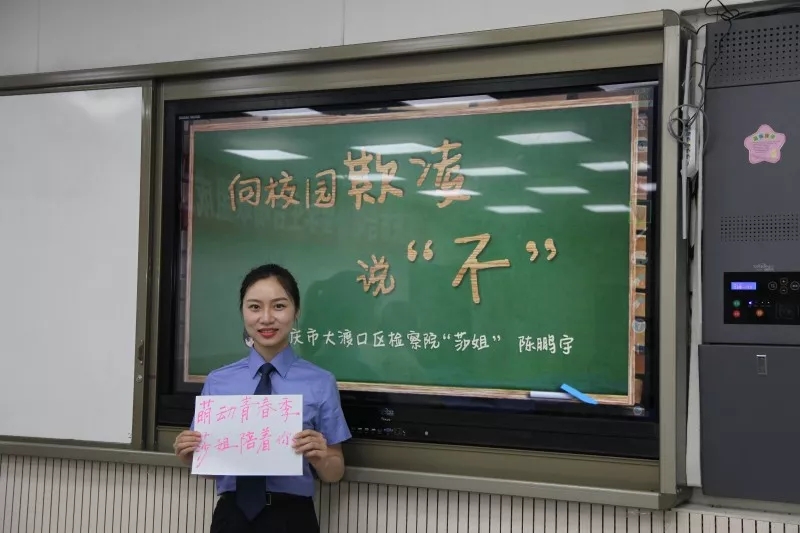 向校园欺凌
说“不”
庆市大渡口区检察院“莎姐” 陈鹏宇
萌动青春季
莎姐陪着你